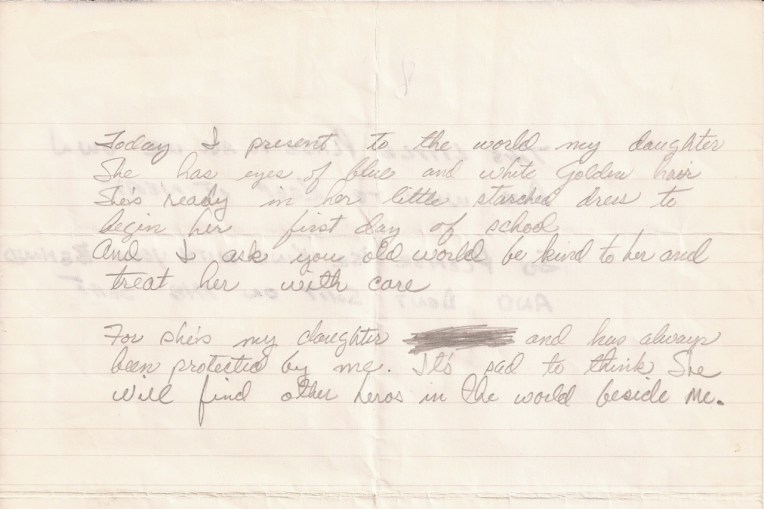 Today I present to the world my daughter
She has eyes of blue and white golden hair
She's ready in her little starched dress to
begin her first day of school
And I ask you old world be kind to her and
treat her with care
For she's my daughter and has always
been protected by me. It's sad to think She
will find other heros in the world beside me.